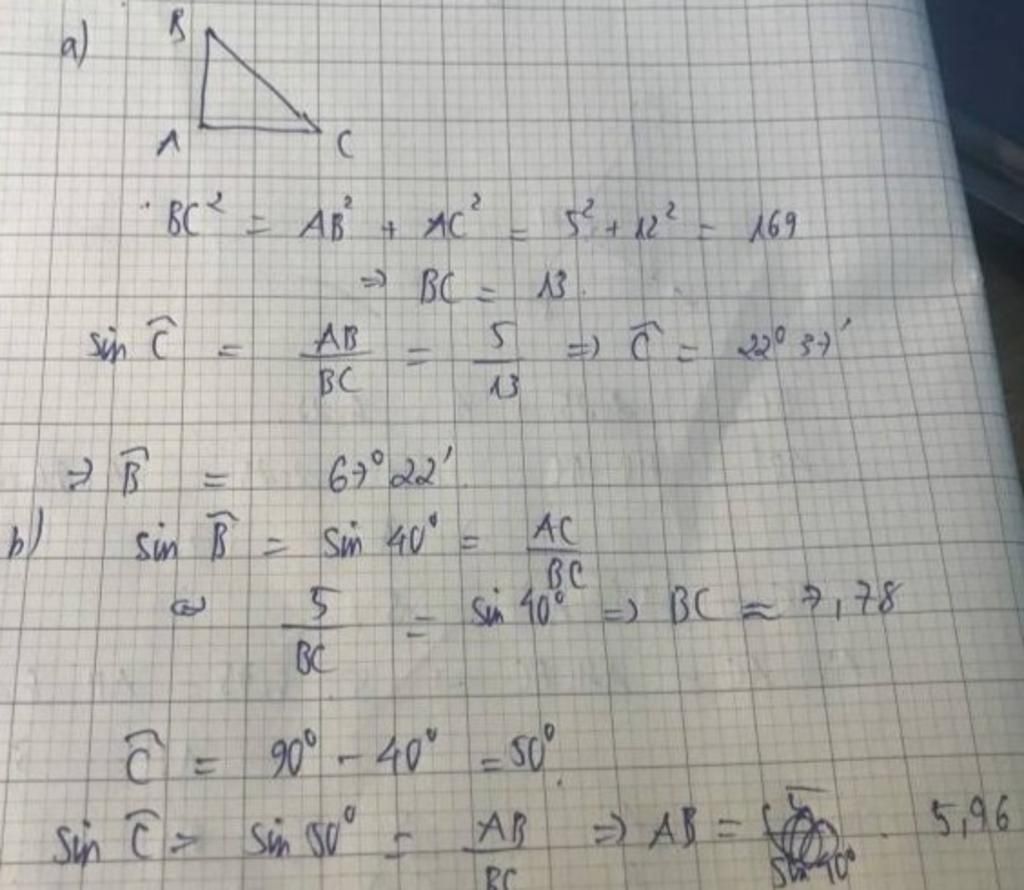 a)
B
A C
BC² = AB² + AC² = 5² + 12² = 169
⇒ BC = 13.
sin Ĉ = AB/BC = 5/13 ⇒ Ĉ = 22° 37'
⇒ B̂ = 67° 22'.
b) sin B̂ = sin 40° = AC/BC
⇔ 5/BC = sin 40° ⇒ BC ≈ 7,78
Ĉ = 90° - 40° = 50°.
sin Ĉ = sin 50° = AB/BC ⇒ AB = 5,96